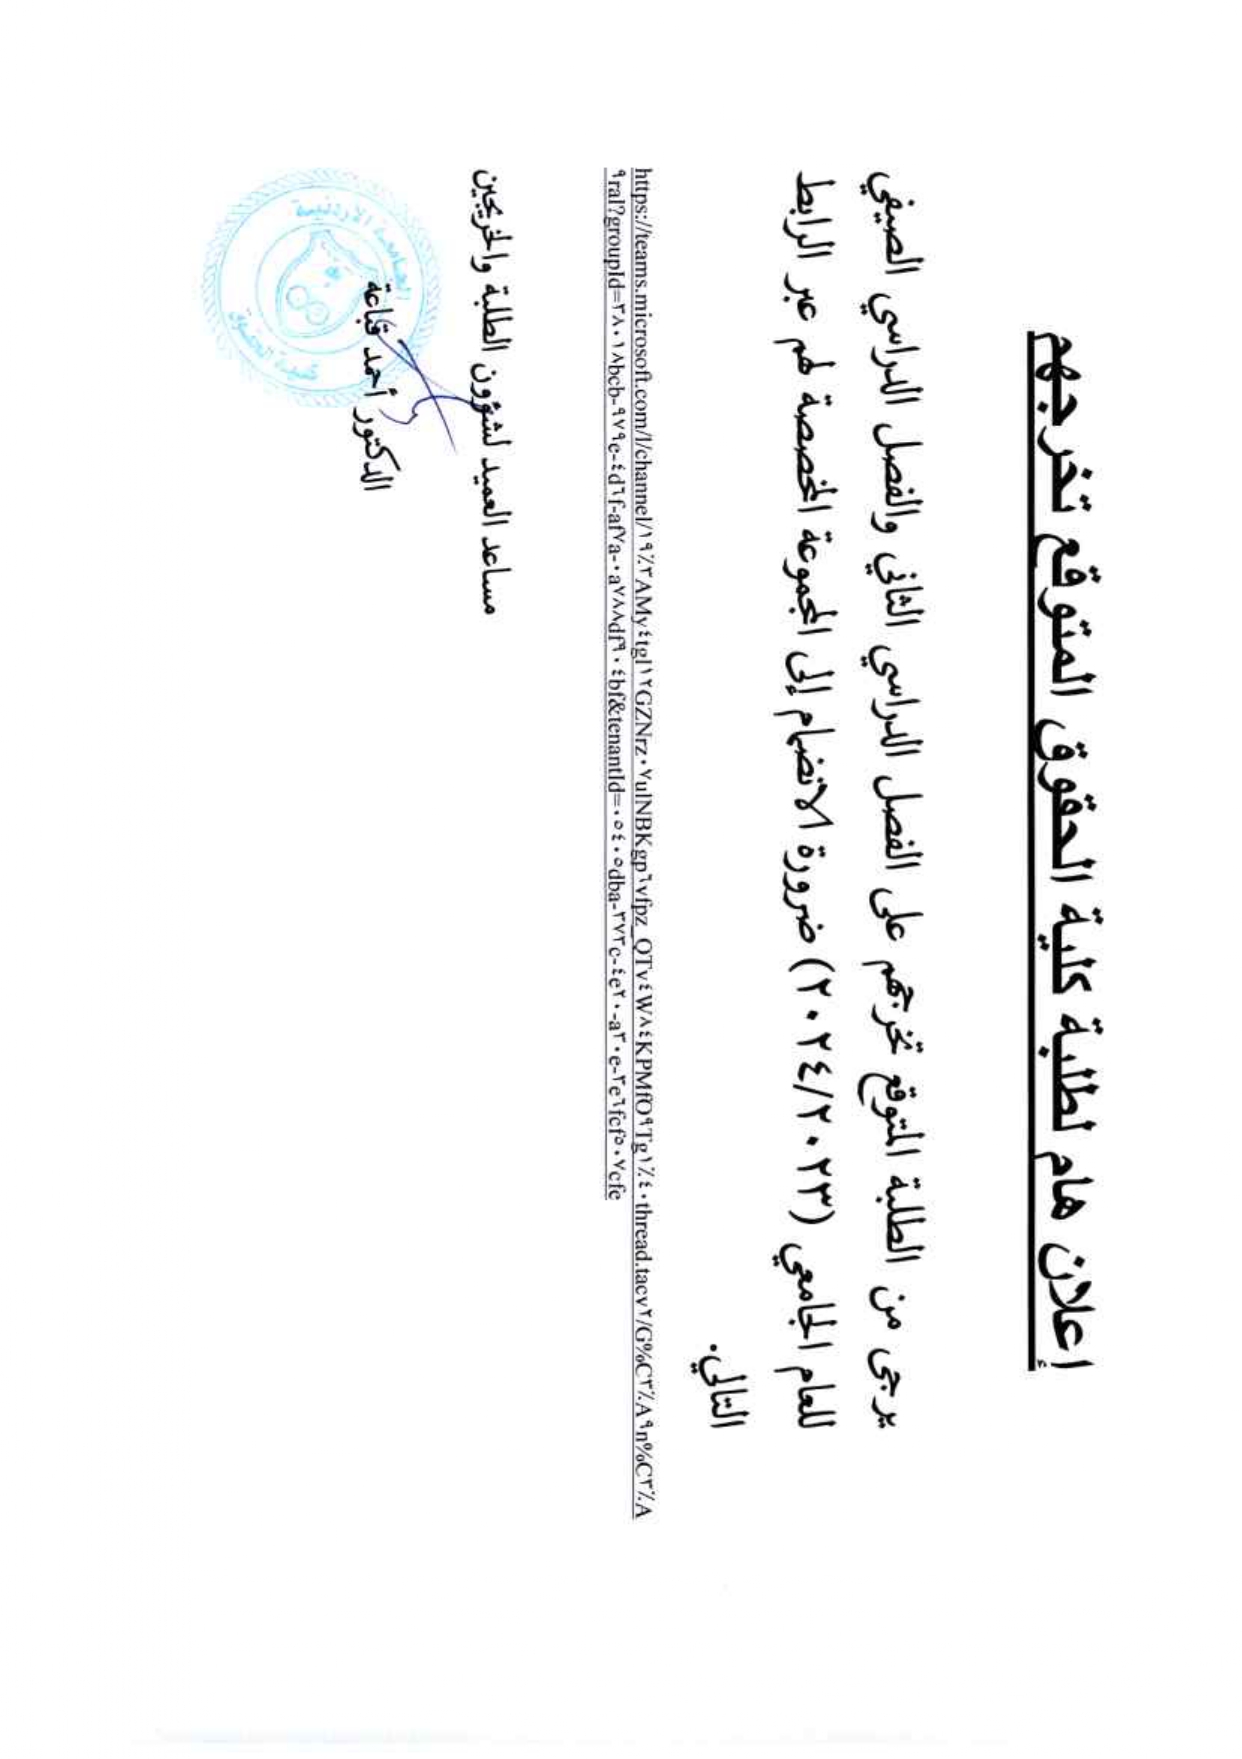 إعلان هام لطلبة كلية الحقوق المتوقع تخرجهم
يرجى من الطلبة المتوقع تخرجهم على الفصل الدراسي الثاني والفصل الدراسي الصيفي
للعام الجامعي (٢٠٢٤/٢٠٢٣) ضرورة الانضمام إلى المجموعة المخصصة لهم عبر الرابط
التالي.
https://teams.microsoft.com/l/channel/١٩٪٣AMy٤tgl١٢GZNrz٠٧ulNBKgp٦vfpz_QTv٤W٨٤KPMfO٩Tg١٪٤٠thread.tacv٢/G%C٣٪A٩n%C٣٪A
٩ral?groupId=٣٨٠١٨bcb-٩٧٩e-٤d٦f-af٧a-٠a٧٨٨df٩٠٤bf&tenantId=٠٥٤٠٥dba-٣٧٣c-٤e٢٠-a٣٠e-٣e٦fcf٥٠٧cfe
مساعد العميد لشؤون الطلبة والخريجين
الدكتور أحمد قباعة
الجامعة الاردنية
كلية الحقوق